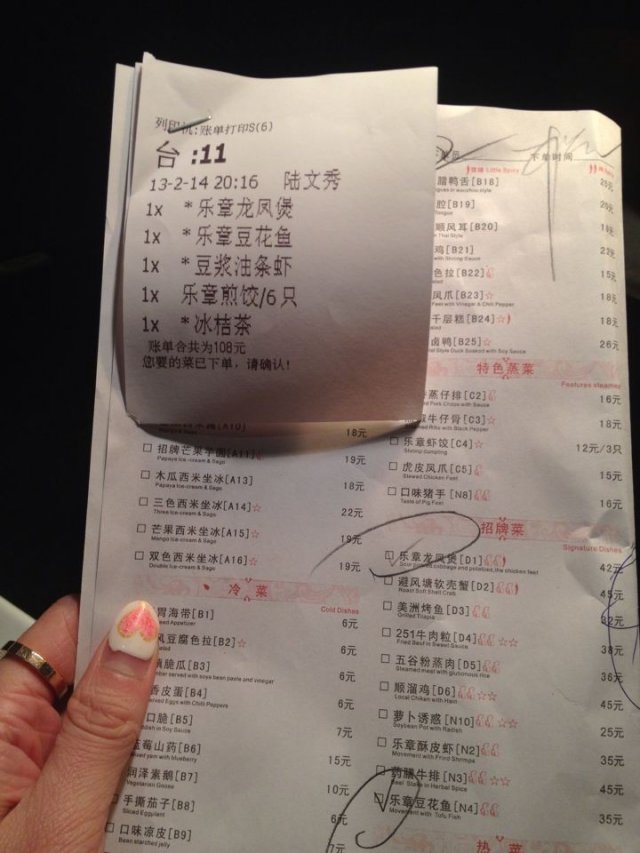 列印机:账单打印S(6)
台 :11
13-2-14 20:16 陆文秀
1x *乐章龙凤煲
1x *乐章豆花鱼
1x *豆浆油条虾
1x 乐章煎饺/6只
1x *冰桔茶
账单合共为108元
您要的菜已下单，请确认!
18元
招牌芒果芋圆[A11]
Papaya Ice-cream & Sago
19元
木瓜西米坐冰[A13]
Papaya Ice-cream & Sago
18元
三色西米坐冰[A14]☆
Three Ice-cream & Sago
22元
芒果西米坐冰[A15]☆
Mango Ice-cream & Sago
19元
双色西米坐冰[A16]☆
Double Ice-cream & Sago
19元
冷 菜
Cold Dishes
胃海带[B1]
6元
豆腐色拉[B2]☆
6元
脆瓜[B3]
6元
皮蛋[B4]
6元
口脆[B5]
7元
蓝莓山药[B6]
15元
润泽素鹅[B7]
Vegetarian Goose
10元
手撕茄子[B8]
Sliced Eggplant
6元
口味凉皮[B9]
Bean starched jelly
7元
下单时间
Little Spicy
腊鸭舌[B18]
腔[B19]
顺风耳[B20]
鸡[B21]
22元
色拉[B22]
15元
凤爪[B23]☆
18元
千层糕[B24]☆
18元
卤鸭[B25]☆
26元
特色蒸菜
Features steamer
蒸仔排[C2]
16元
牛仔骨[C3]☆
18元
乐章虾饺[C4]☆
Shrimp dumpling
12元/3只
虎皮凤爪[C5]
Stewed Chicken Feet
15元
口味猪手[N8]
Taste of Pig Feet
16元
招牌菜
Signature Dishes
乐章龙凤煲[D1]
42元
避风塘软壳蟹[D2]
Roast Soft Shell Crab
45元
美洲烤鱼[D3]
Grilled Tilapia
32元
251牛肉粒[D4]☆☆
Fried Beef in Sweet Sauce
38元
五谷粉蒸肉[D5]
Steamed meat with glutionous rice
36元
顺溜鸡[D6]☆☆
Local Chiken with Ham
45元
萝卜诱惑[N10]☆☆
Soybean Pet with Radish
25元
乐章酥皮虾[N2]
Movement with Fried Shrimps
35元
药膳牛排[N3]☆☆
45元
乐章豆花鱼[N4]
Movement with Tofu Fish
35元
热 菜